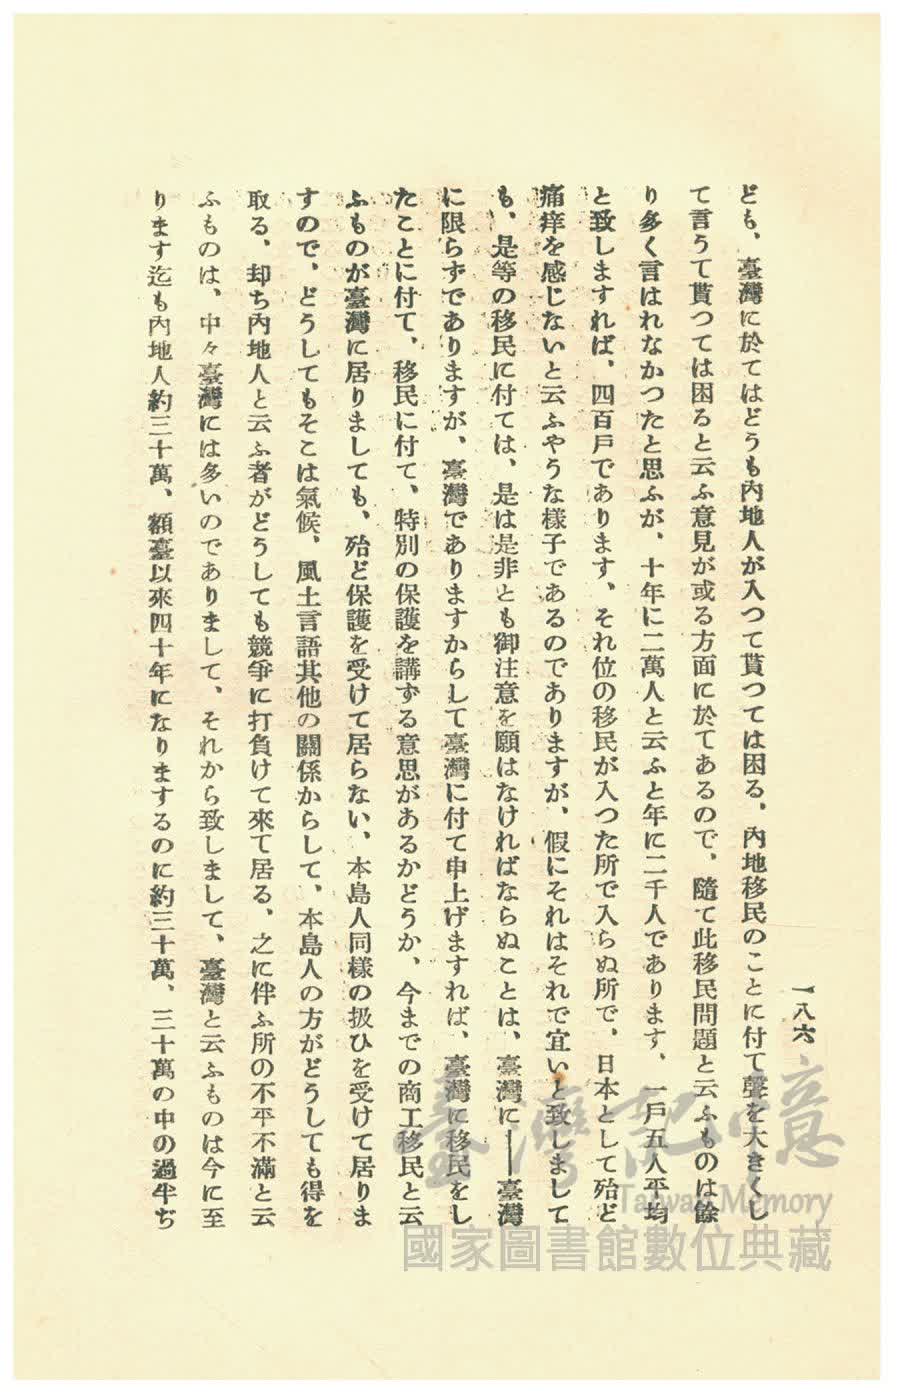 一八六
ども、臺灣に於てはどうも內地人が入つて貰つては困る、內地移民のことに付て聲を大きくし
て言うて貰つては困ると云ふ意見が或る方面に於てあるので、隨て此移民問題と云ふものは餘
り多く言はれなかつたと思ふが、十年に二萬人と云ふと年に二千人であります、一戶五人平均
と致しますれば、四百戶であります、それ位の移民が入つた所で入らぬ所で、日本として殆ど
痛痒を感じないと云ふやうな樣子であるのでありますが、假にそれはそれで宜いと致しまして
も、是等の移民に付ては、是は是非とも御注意を願はなければならぬことは、臺灣に――臺灣
に限らずでありますが、臺灣でありますからして臺灣に付て申上げますれば、臺灣に移民をし
たことに付て、移民に付て、特別の保護を講ずる意思があるかどうか、今までの商工移民と云
ふものが臺灣に居りましても、殆ど保護を受けて居らない、本島人同樣の扱ひを受けて居りま
すので、どうしてもそこは氣候、風土言語其他の關係からして、本島人の方がどうしても得を
取る、却ち內地人と云ふ者がどうしても競爭に打負けて來て居る、之に伴ふ所の不平不滿と云
ふものは、中々臺灣には多いのでありまして、それから致しまして、臺灣と云ふものは今に至
ります迄も內地人約三十萬、額臺以來四十年になりまするのに約三十萬、三十萬の中の過半ぢ
臺灣記憶
Taiwan Memory
國家圖書館數位典藏